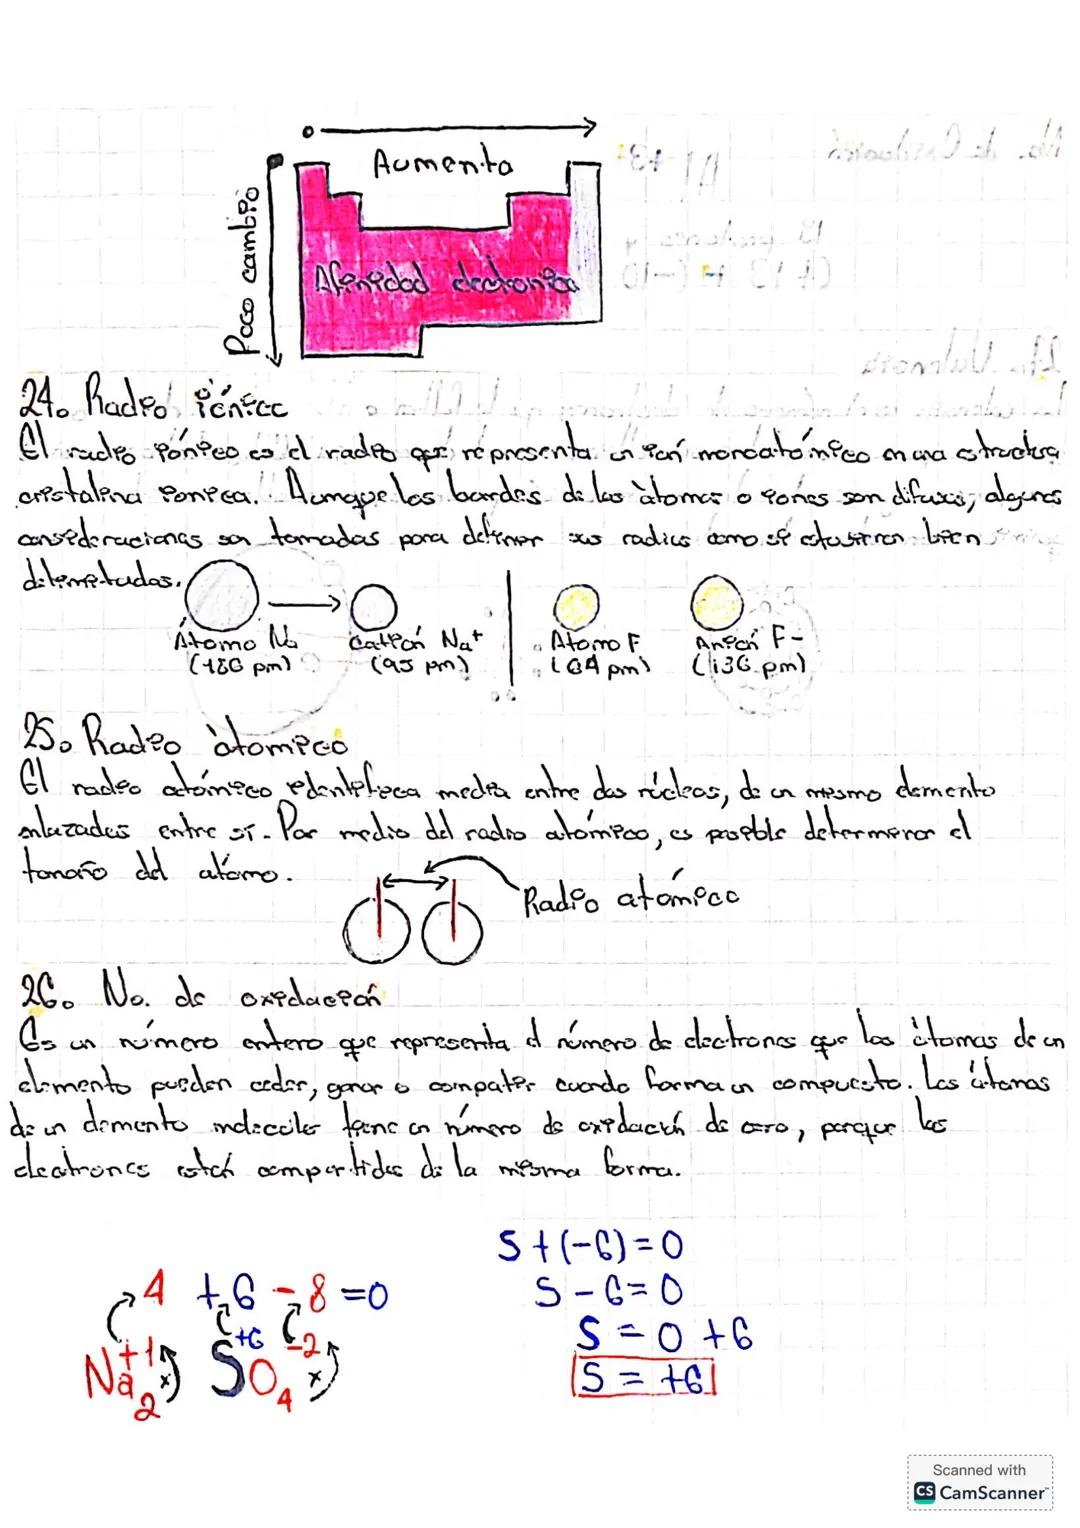 Aumenta
Poco cambio
Afinidad electronica
24. Radio iónico
El radio iónico es el radio que representa un ión monoatómico en una estructura
cristalina ionica. Aumque los bordes de los àtomos o iones son difusos, algunas
consideraciones son tomadas para definir sus radios como si estuvieran bien
delimitados.
Átomo Na Catión Na+ Atomo F Anión F-
(186 pm) (95 pm) (64 pm) (136 pm)
25. Radio àtomico
El radio atómico identifica media entre dos núcleos, de un mismo elemento
enlazados entre sí. Por medio del radio atómico, es posible determinar el
tamaño del atómo.
Radio atómico
26. No. de oxidación
Es un número entero que representa el número de electrones que los átomos de un
elemento pueden ceder, ganar o compatir cuando forma un compuesto. Los átomos
de un elemento moleculer tiene un número de oxidación de cero, porque los
electrones están compartidos de la misma forma.
S+(-6)=0
4 +6 -8 =0
S-6=0
S=0+6
Na+1 2 x S+6 O-2 4 x
S=+6
Scanned with
CS CamScanner